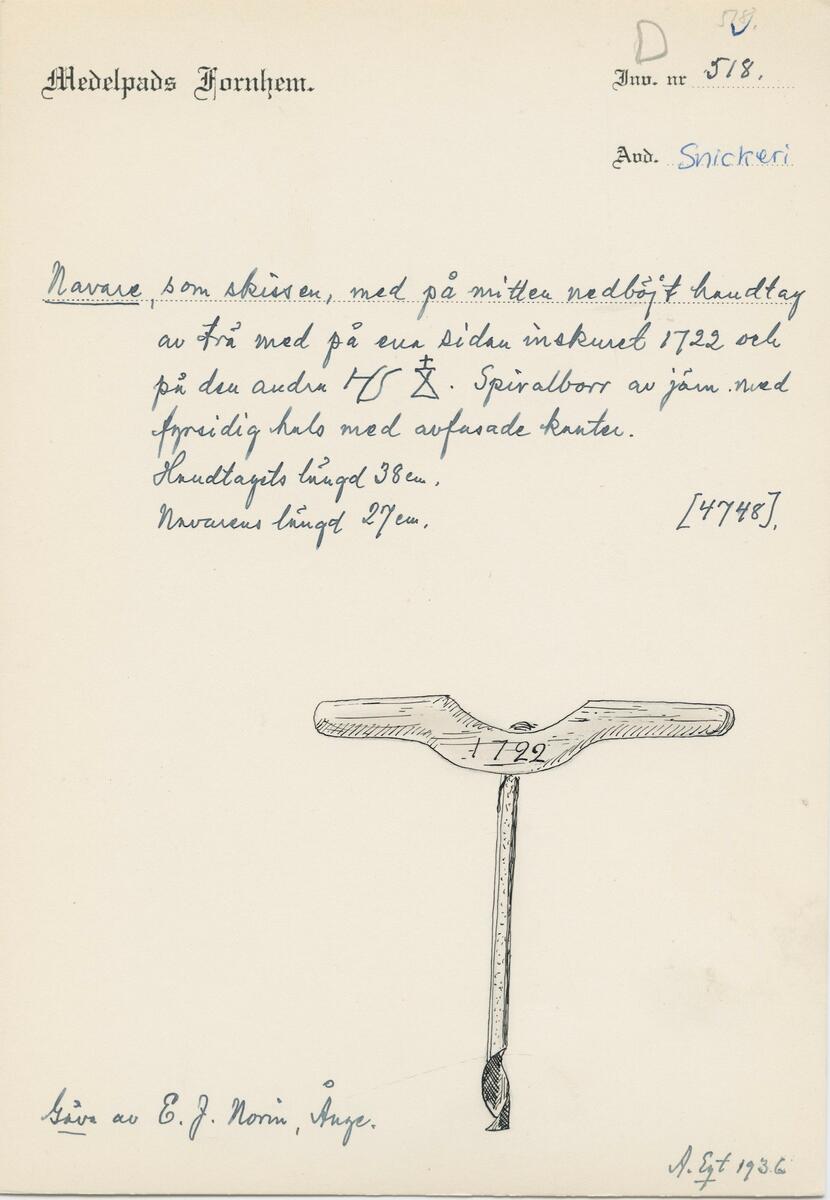 D 518.
Medelpads Fornhem.
Inv. nr 518.
Avd. Snickeri
Navare, som skissen, med på mitten nedböjt handtag
av trä med på ena sidan inskuret 1722 och
på den andra . Spiralborr av järn med
fyrsidig hals med avfasade kanter.
Handtagets längd 38 cm.
Navarens längd 27 cm. [4748].
1722
Gåva av E. J. Norin, Ånge.
A. Egt 1936